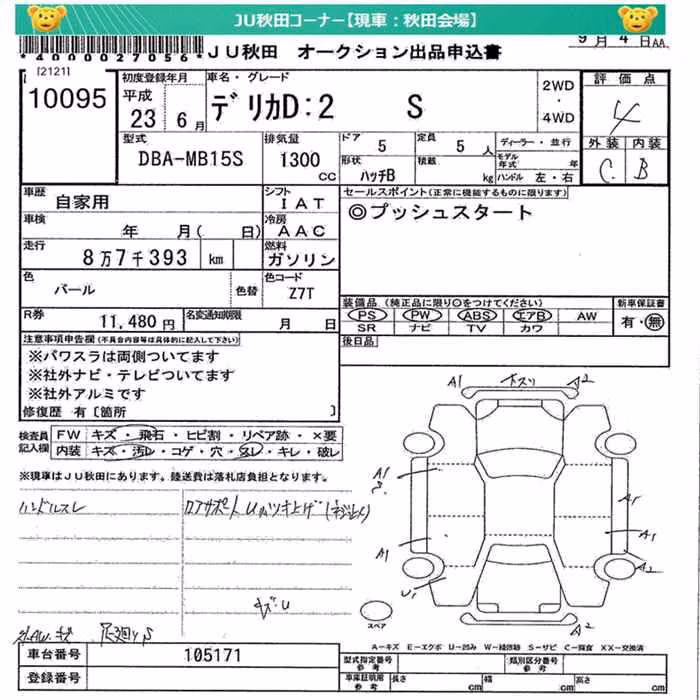 JU秋田コーナー【現車：秋田会場】
*4000027056*
JU秋田 オークション出品申込書
9月4日AA
[2121]
10095
初度登録年月
平成
23 6月
車名・グレード
デリカD:2 S
2WD
・
4WD
評価点
4
外装 内装
C B
型式
DBA-MB15S
排気量
1300
cc
ドア
5
定員
5人
形状
ハッチB
積載
kg
ディーラー・並行
モデル年式 年
ハンドル 左・右
車歴
自家用
シフト
IAT
車検
年 月( 日)
冷房
AAC
走行
8万7千393 km
燃料
ガソリン
色
パール
色替
色コード
Z7T
R券
11,480円
名変通知期限
月 日
セールスポイント(正常に機能するものに限ります)
◎プッシュスタート
装備品(純正品に限り○をつけてください)
PS PW ABS エアB AW
SR ナビ TV カワ
新車保証書
有・無
後日品
注意事項申告欄(不具合内容等は具体的に記入して下さい)
※パワスラは両側ついてます
※社外ナビ・テレビついてます
※社外アルミです
修復歴 有〔箇所 〕
検査員
記入欄
FW キズ・飛石・ヒビ割・リペア跡・×要
内装 キズ・汚レ・コゲ・穴・スレ・キレ・破レ
※現車はJU秋田にあります。陸送費は落札店負担となります。
ハンドルスレ
キズ:U
A1
下スリ
A2
A1
A1
A1
A1
A2
U1
A2
スペア
A-キズ E-エクボ U-凹み W-補修跡 S-サビ C-腐食 XX-交換済
車台番号
105171
登録番号
型式指定番号
参考
類別区分番号
参考
車庫証明用
参考
長さ cm
幅 cm
高さ cm